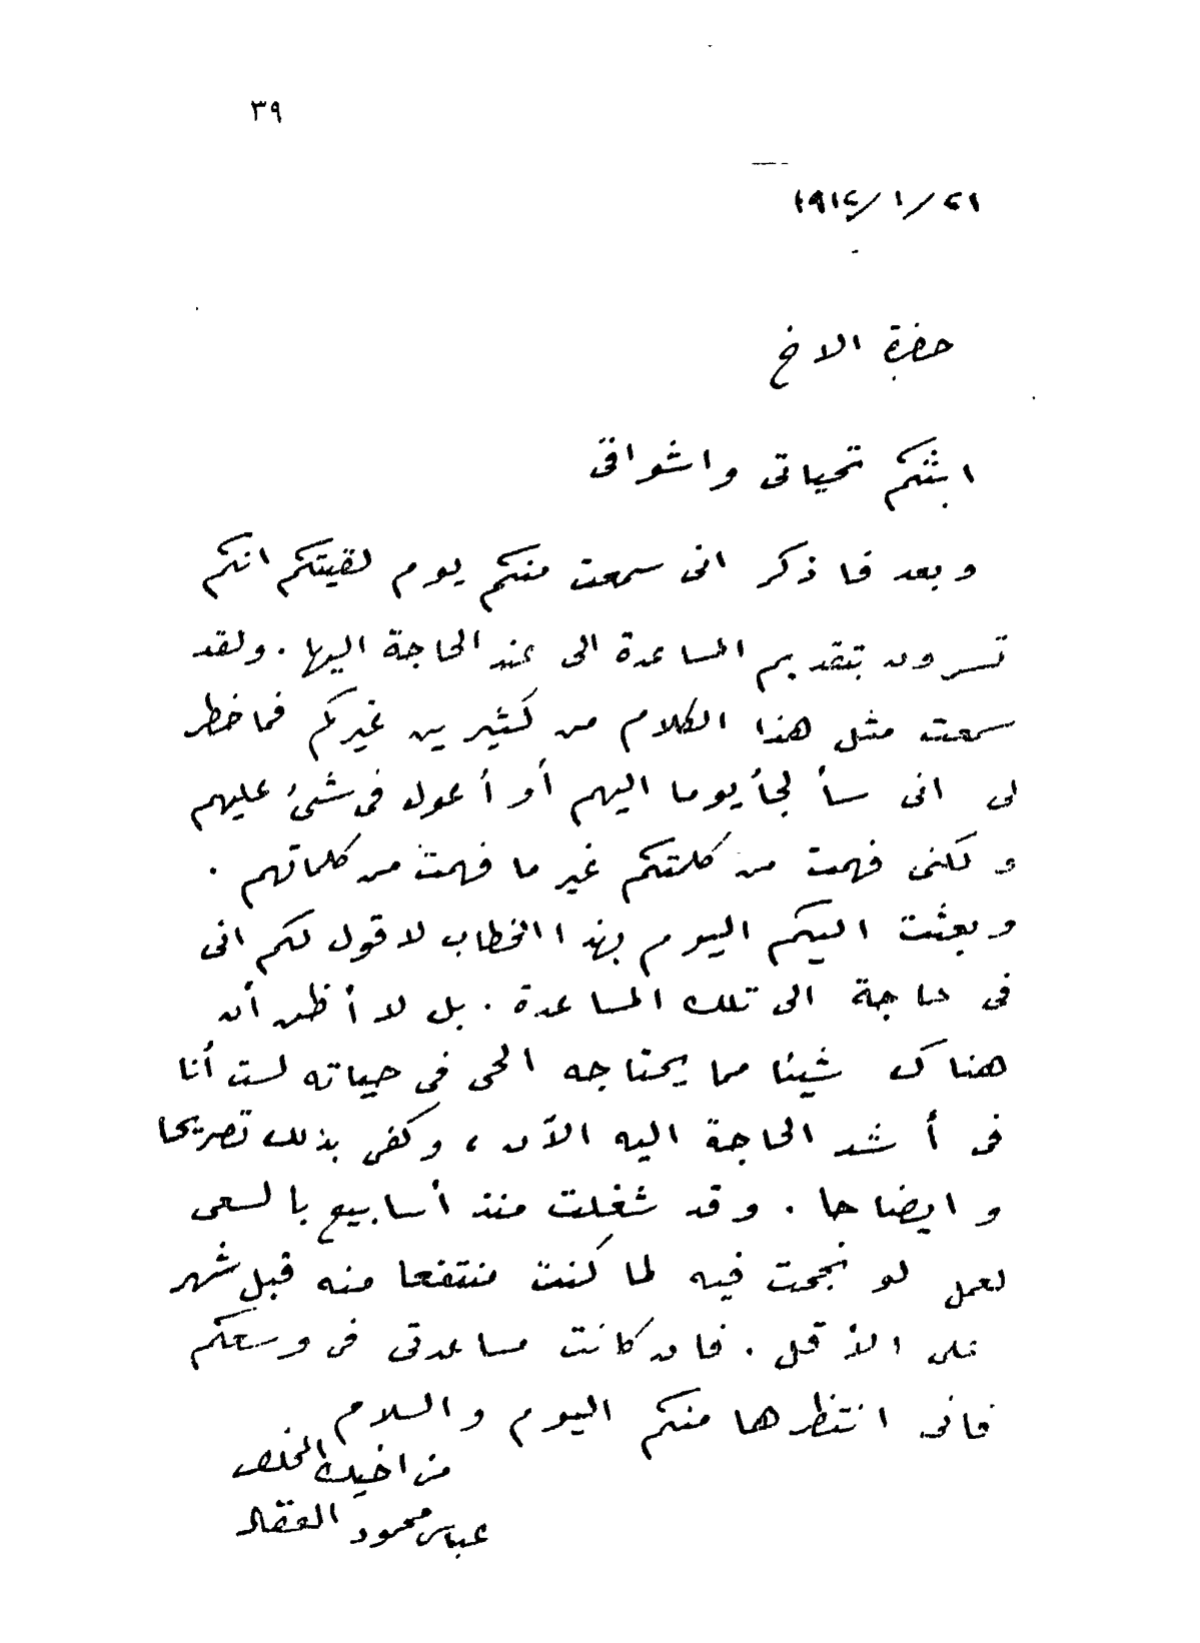 ٣٩
٢١/١/١٩١٤
حضرة الاخ
ابثكم تحياتى واشواقى
وبعد فاذكر انى سمعت منكم يوم لقيتكم انكم
تسرون بتقديم المساعدة الى عند الحاجة اليها . ولقد
سمعت مثل هذا الكلام من كثيرين غيركم فما خطر
لى انى سألجأ يوما اليهم أو أعول فى شئ عليهم
ولكنى فهمت من كلمتكم غير ما فهمت من كلماتهم .
وبعثت اليكم اليوم بهذا الخطاب لاقول لكم انى
فى حاجة الى تلك المساعدة . بل لا أظن أن
هناك شيئا مما يحتاجه الحى فى حياته لست أنا
فى أشد الحاجة اليه الآن ، وكفى بذلك تصريحا
وايضاحا . وقد شغلت منذ أسابيع بالسعى
لعمل لو نجحت فيه لما كنت منتفعا منه قبل شهر
على الأقل . فان كانت مساعدتى فى وسعكم
فانى انتظرها منكم اليوم والسلام
من اخيك المخلص
عباس محمود العقاد